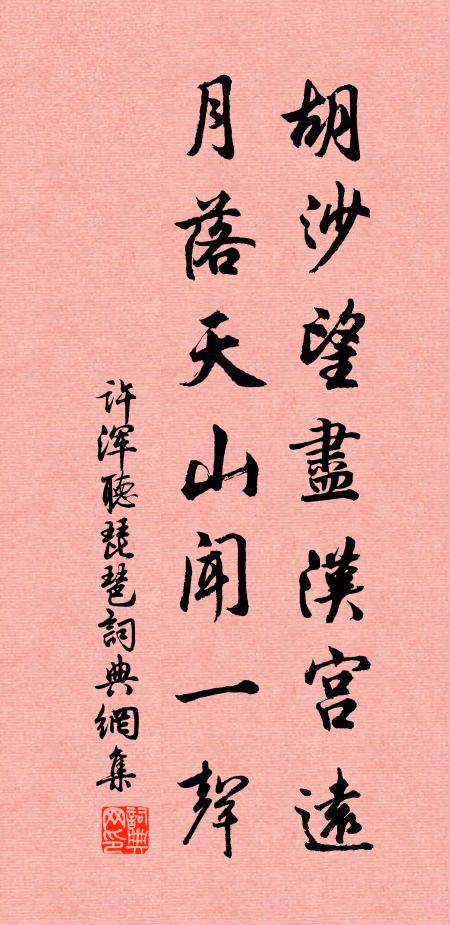 胡沙望盡漢宮遠
月落天山聞一聲
许渾聽琵琶詞典網集
詞典網印